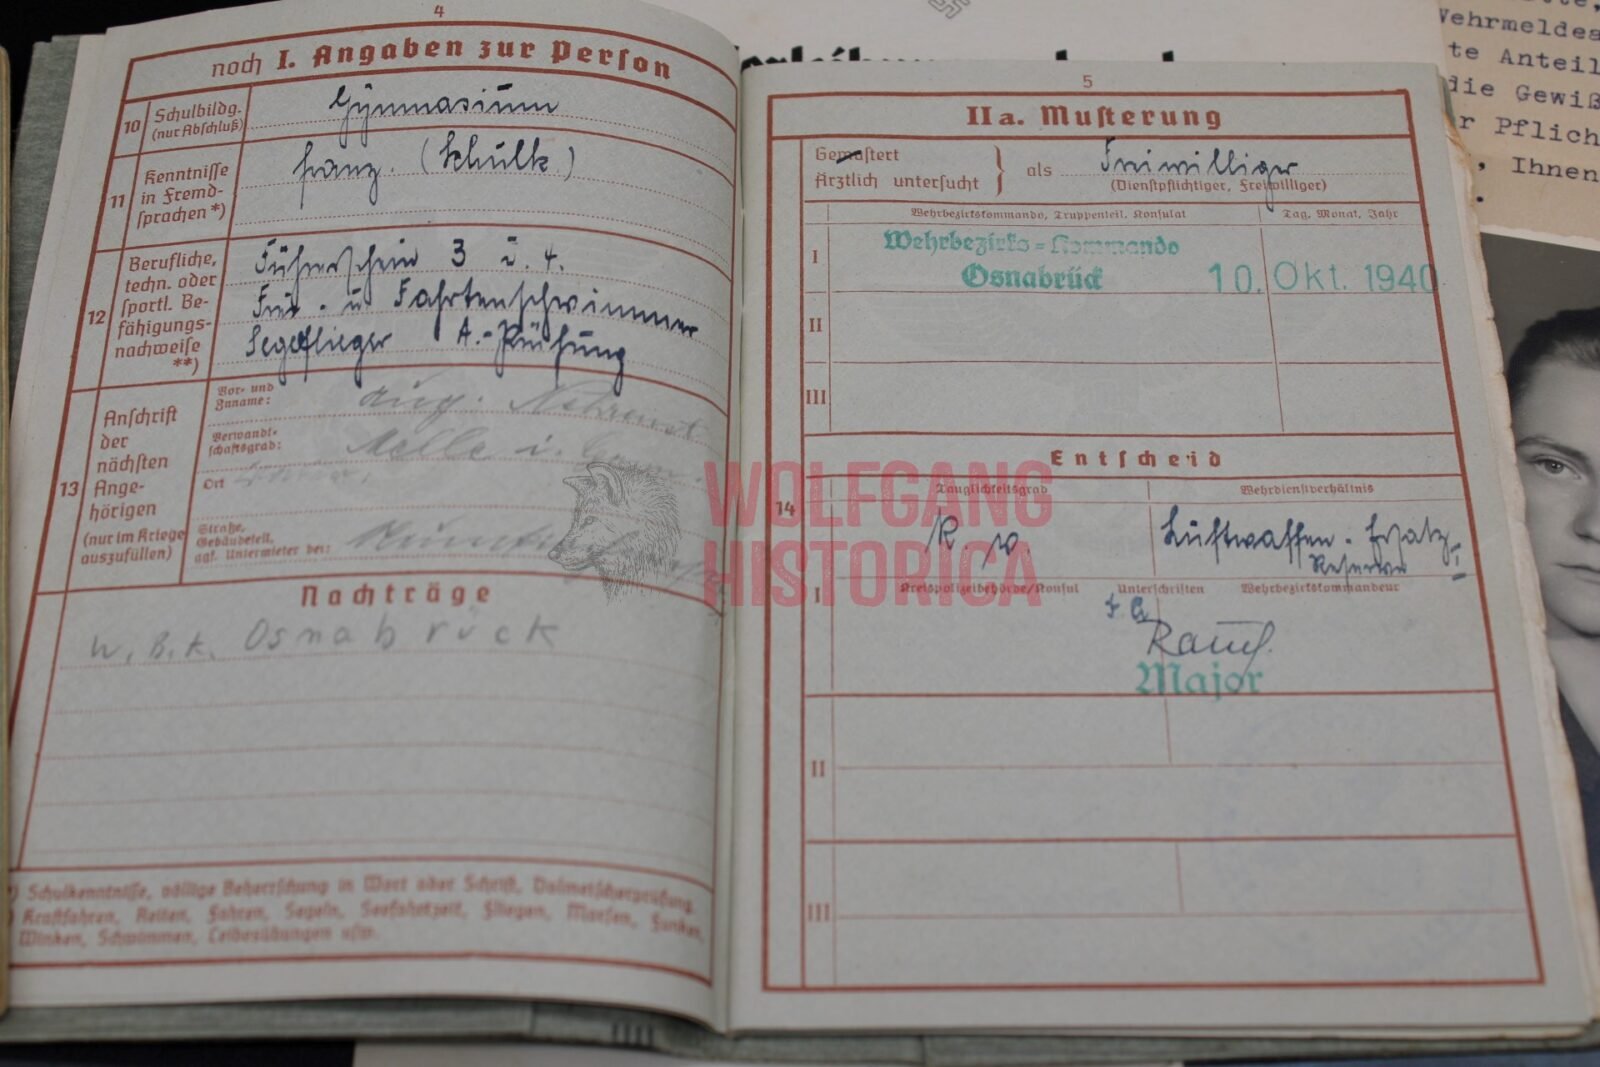 4
noch I. Angaben zur Person
10 Schulbildg. (nur Abschluß)
Gymnasium
11 Kenntnisse in Fremd-
sprachen *)
franz. (Schulk.)
12 Berufliche,
techn. oder
sportl. Be-
fähigungs-
nachweise
**)
Führerschein 3 u. 4.
Frei- u. Fahrtenschwimmer
Segelflieger A.-Prüfung
13 Anschrift
der
nächsten
Ange-
hörigen
(nur im Kriege
auszufüllen)
Vor- und
Zuname:
Aug.
Verwandt-
schaftsgrad:
Melle i.
Ort
Straße,
Gebäudeteil,
ggf. Untermieter bei:
Nachträge
W.B.K. Osnabrück
*) Schulkenntnisse, völlige Beherrschung in Wort oder Schrift, Dolmetscherprüfung.
**) Kraftfahren, Reiten, Fahren, Segeln, Seefahrtzeit, Fliegen, Morsen, Funken,
Winken, Schwimmen, Leibesübungen usw.
5
IIa. Musterung
Gemustert
Ärztlich untersucht
als Freiwilliger
(Dienstpflichtiger, Freiwilliger)
Wehrbezirkskommando, Truppenteil, Konsulat
Tag, Monat, Jahr
I
Wehrbezirks-Kommando
Osnabrück
10. Okt. 1940
II
III
Entscheid
14
Tauglichkeitsgrad
Wehrdienstverhältnis
k v.
Luftwaffen-Ersatz-
Reserve I
I
Kreispolizeibehörde/Konsul
Unterschriften
Wehrbezirkskommandeur
Major
II
III
WOLFGANG
HISTORICA
Wehrmeldea
te Anteil
die Gewiß
r Pflich
, Ihnen